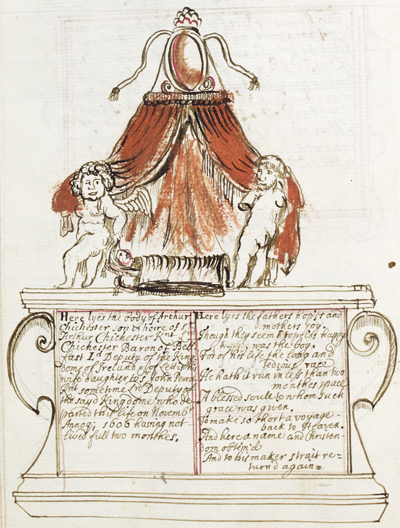 Here lyes the body of Arthur
Chichester son & heire of Sr
Arthur Chichester Knt
Chichester Baron of Bel
fast Ld Deputy of the King
domes of Ireland of Lettice his
wife daughter to Sr John Perrot
Knt sometime Ld Deputy of
the sayd Kingdome who de
parted this life on Novemb
Annoq; 1606 having not
lived full two monthes.
Here lyes the fathers hopes and
mothers joy,
Though they seem hopeles happy
was the boy
For of his life the long and
tedious race
He hath it run in less than two
monthes space
A blessed soule to whom such
grace was given.
To make so short a voyage
back to Heaven.
And here a name and Christen-
dom obtein'd
And to his maker strait re-
turnd again.